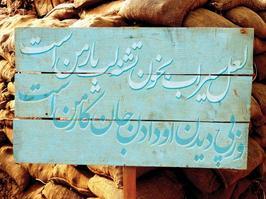 لعل سیراب بخون تشنه لب یار من است
وز پی دیدن او دادن جان کار من است